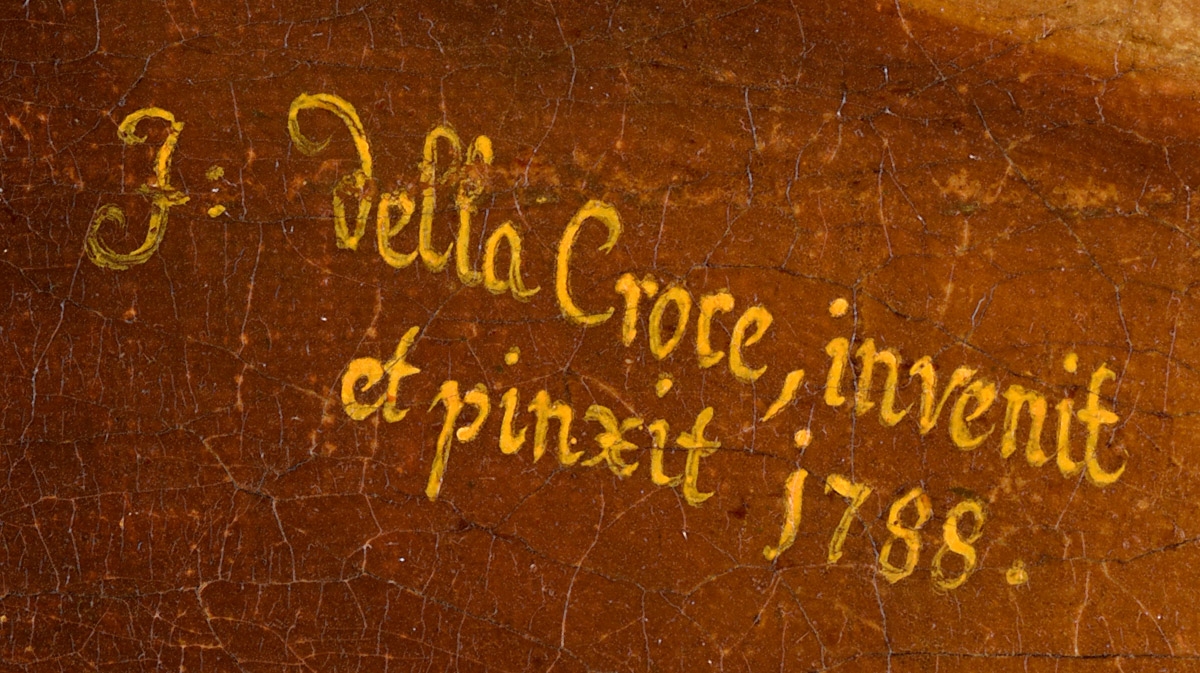 J: della Croce, invenit
et pinxit 1788.